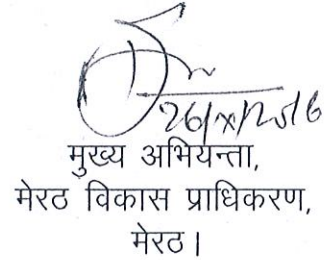 26/x/2016
मुख्य अभियन्ता,
मेरठ विकास प्राधिकरण,
मेरठ।